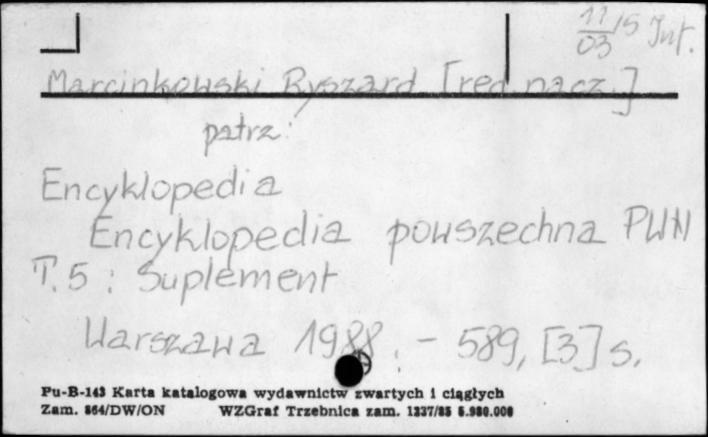 11/03/5 Inf.
Marcinkowski Ryszard [red nacz.]
patrz:
Encyklopedia
Encyklopedia powszechna PWN
T. 5 : Suplement
Warszawa 1988. - 589, [3] s.
Pu-B-143 Karta katalogowa wydawnictw zwartych i ciągłych
Zam. 864/DW/ON WZGraf Trzebnica zam. 1337/85 5.980.000